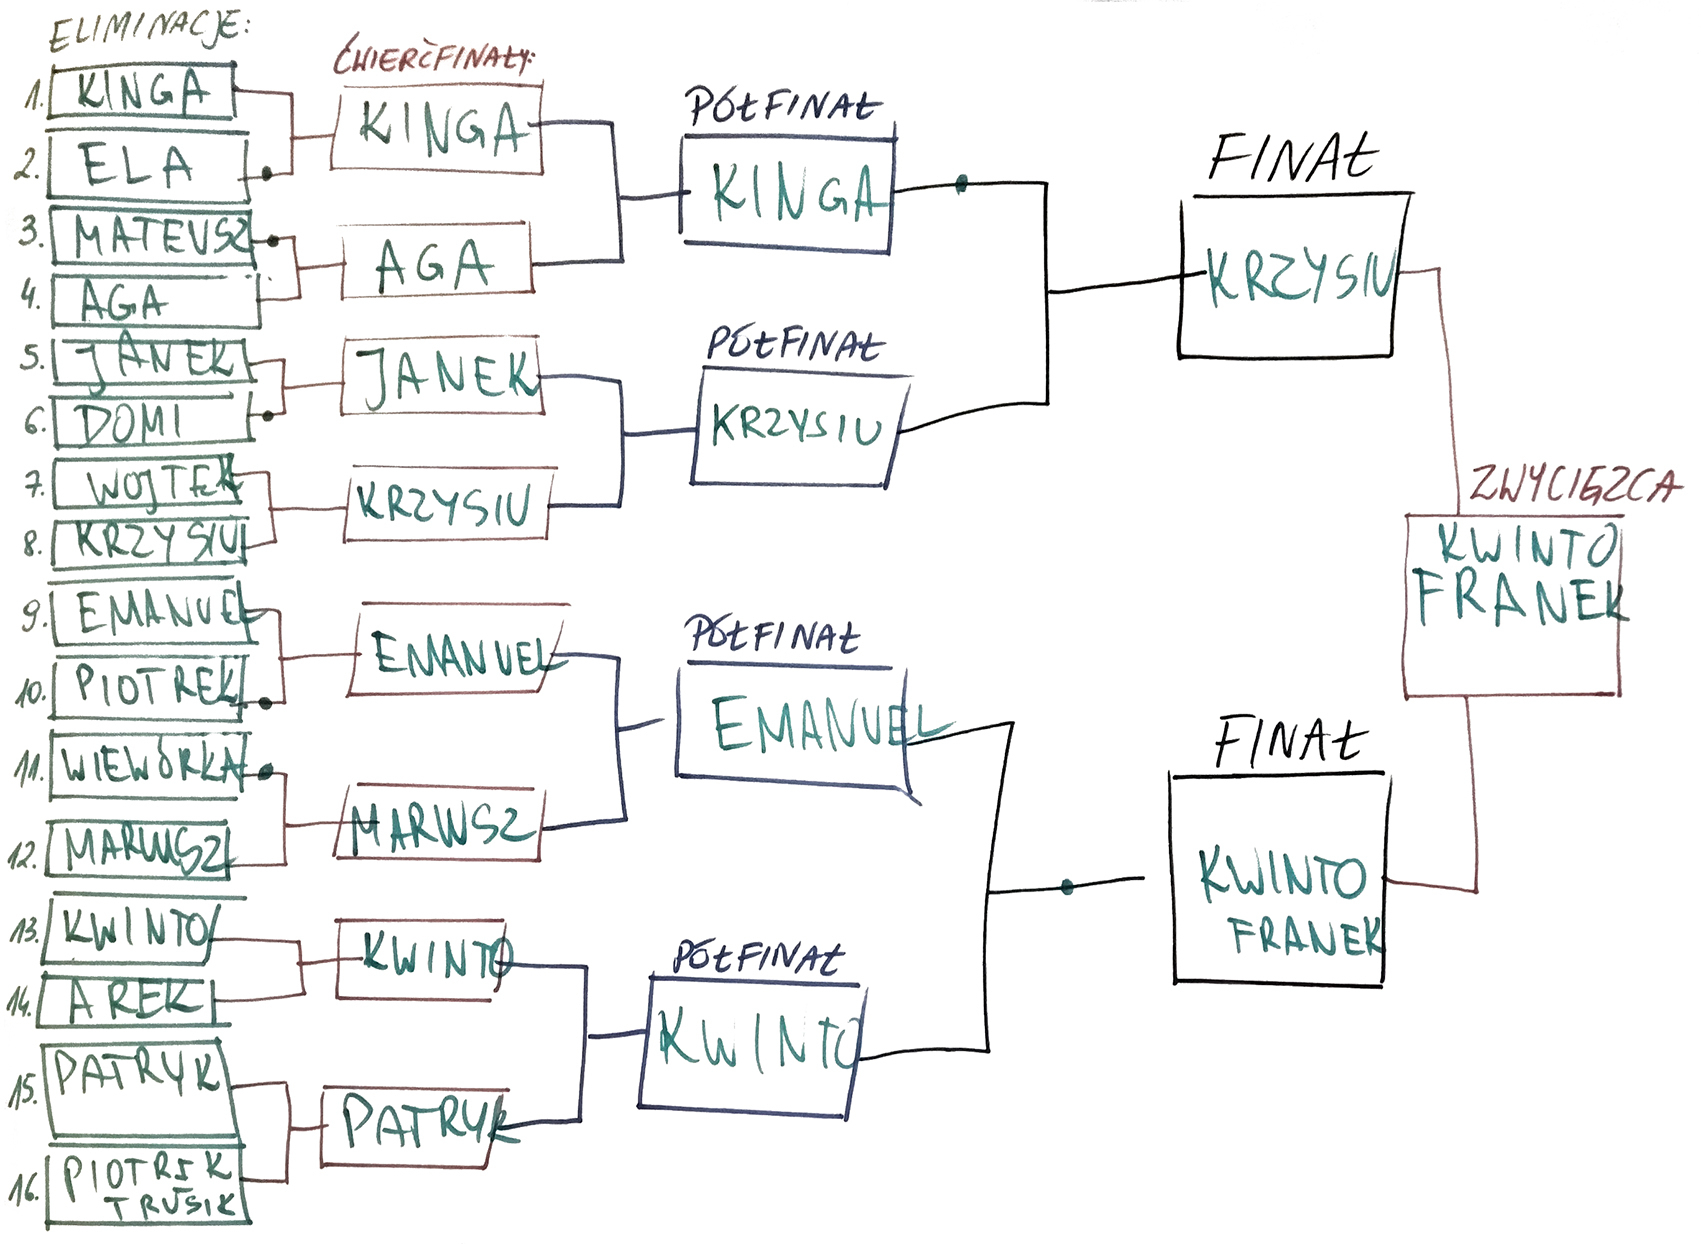 ELIMINACJE:
1. KINGA
2. ELA
3. MATEUSZ
4. AGA
5. JANEK
6. DOMI
7. WOJTEK
8. KRZYSIU
9. EMANUEL
10. PIOTREK
11. WIEWÓRKA
12. MARIUSZ
13. KWINTO
14. AREK
15. PATRYK
16. PIOTREK
TRUSIK
ĆWIERĆFINAŁY:
KINGA
AGA
JANEK
KRZYSIU
EMANUEL
MARIUSZ
KWINTO
PATRYK
PÓŁFINAŁ
KINGA
PÓŁFINAŁ
KRZYSIU
PÓŁFINAŁ
EMANUEL
PÓŁFINAŁ
KWINTO
FINAŁ
KRZYSIU
FINAŁ
KWINTO
FRANEK
ZWYCIĘZCA
KWINTO
FRANEK